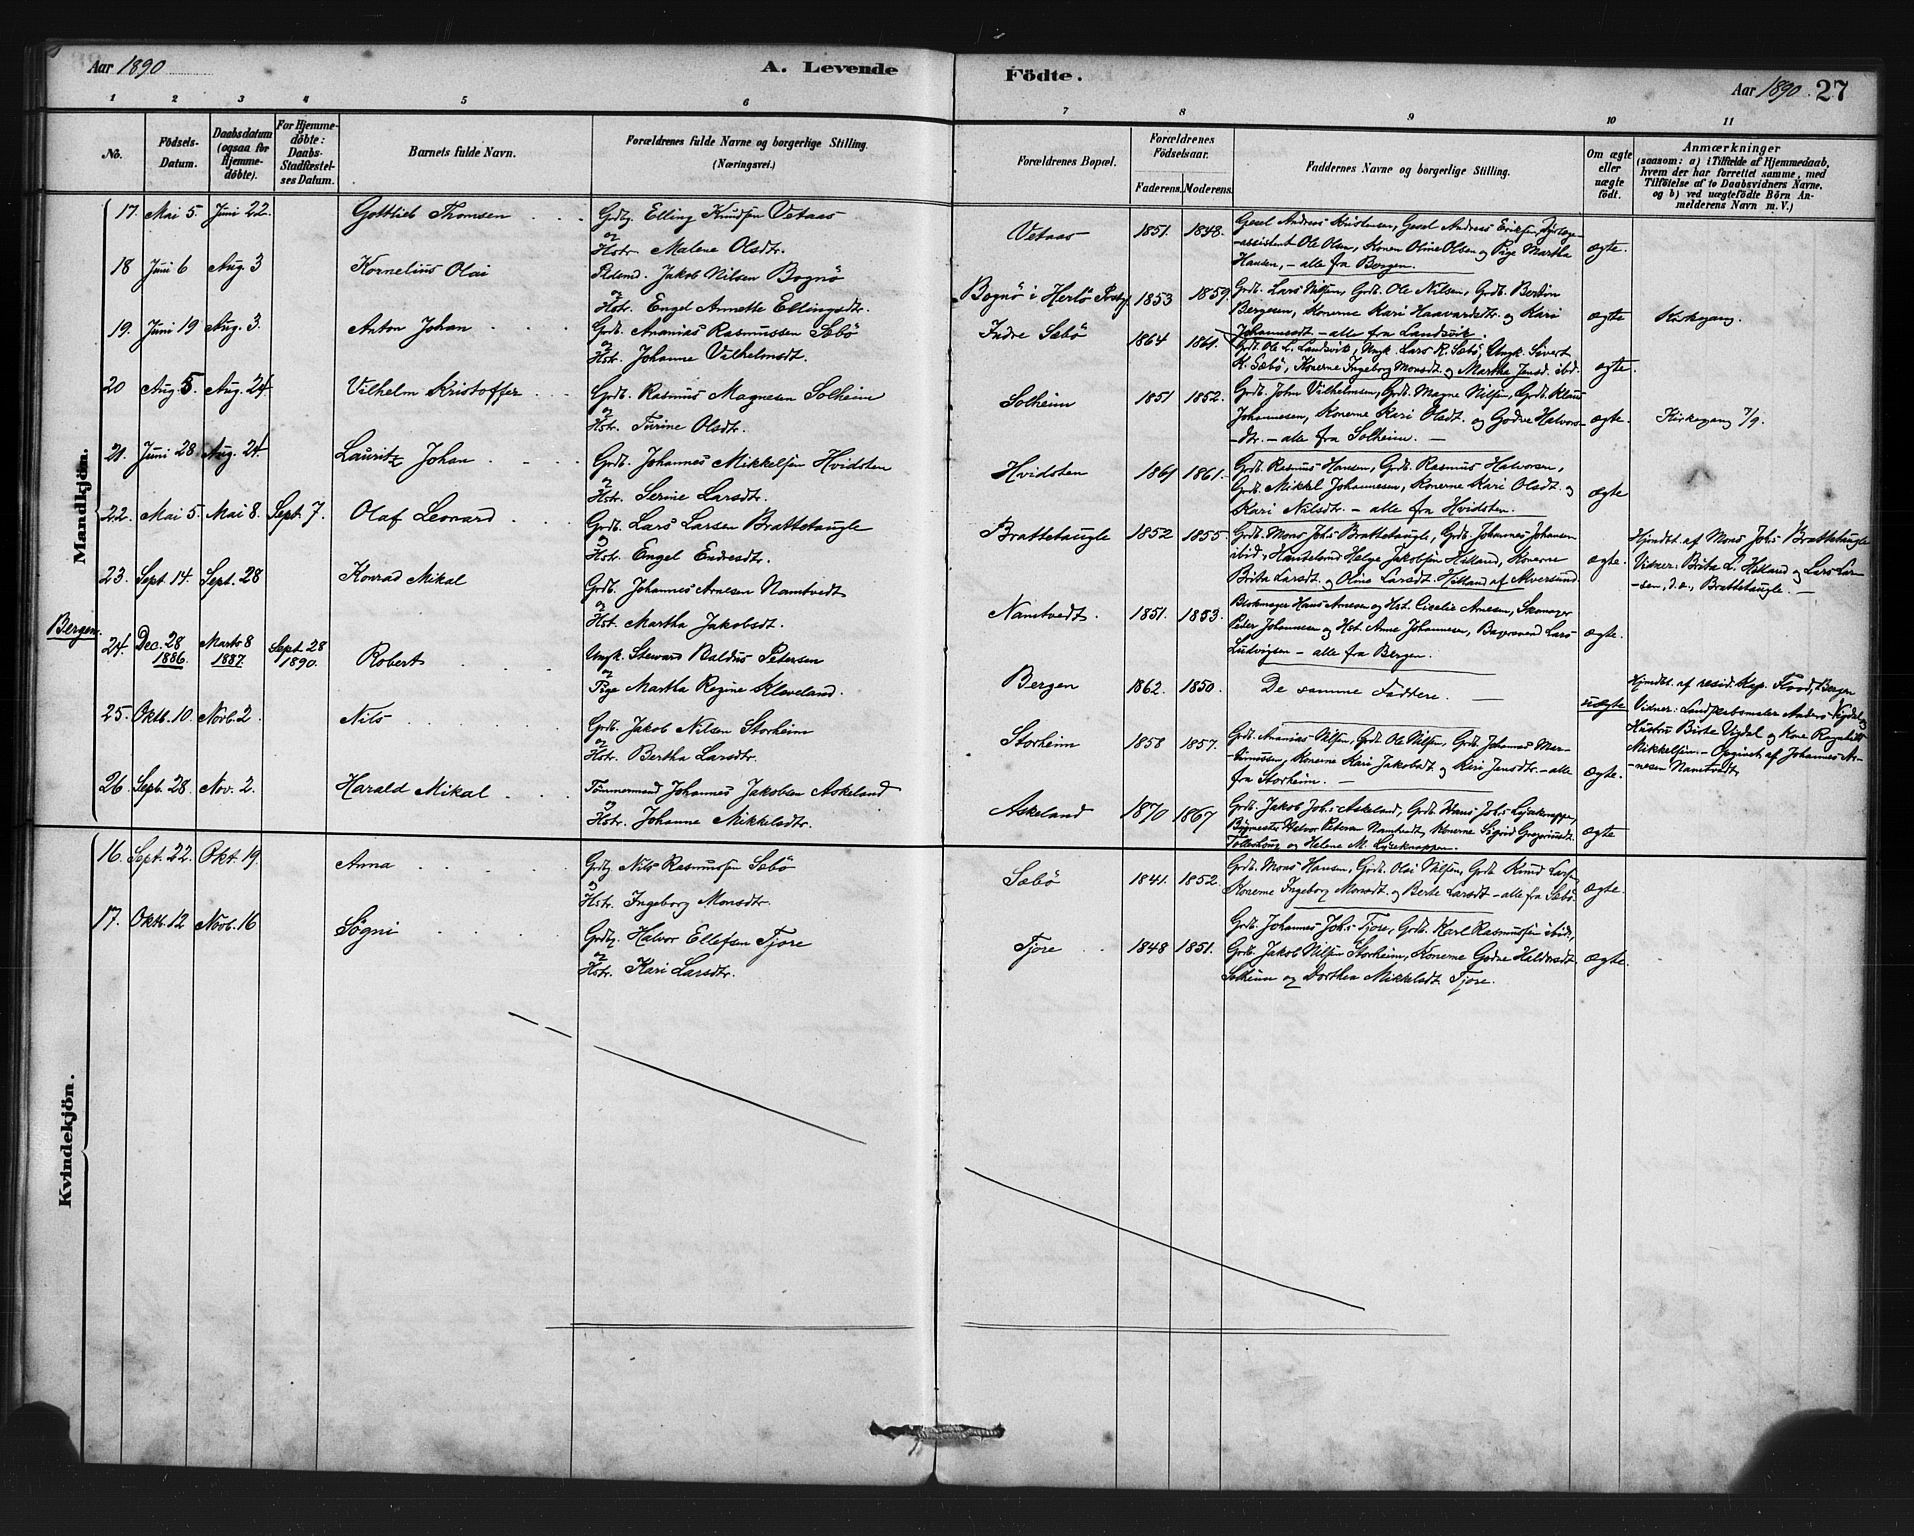 Aar 1890
A. Levende
Födte.
Aar 1890. 27
1 2 3 4 5 6 7 8 9 10 11
No.
Födsels-
Datum.
Daabsdatum
(ogsaa for
Hjemme-
döbte).
For Hjemme-
döbte:
Daabs-
Stadfæstel-
ses Datum.
Barnets fulde Navn.
Forældrenes fulde Navne og borgerlige Stilling.
(Næringsvei.)
Forældrenes Bopæl.
Forældrenes
Födselsaar.
Faderens. Moderens.
Faddernes Navne og borgerlige Stilling.
Om ægte
eller
uægte
födt.
Anmærkninger
(saasom: a) i Tilfælde af Hjemmedaab,
hvem der har forrettet samme, med
Tilföielse af to Daabsvidners Navne,
og b) ved uægtefödte Börn An-
melderens Navn m. V.)
Mandkjön.
17. Mai 5. Juni 22. Gottlieb Thomsen
Grdb. Elling Knudsen Vetaas
og
Hstr. Malene Olsdtr.
Vetaas 1851. 1848.
Gesel Andreas Kristensen, Gesel Andreas Eriksen,
-assistent Ole Olsen, Konen Oline Olsen og Pige Martha
Hansen, - alle fra Bergen.
ægte.
18 Juni 6 Aug. 3 Kornelius Olai
Jakob Nilsen Bognö
og
Hstr. Engel Annette Ellingsdtr.
Bognö i Herlö 1853 1859.
Grdb. Lars Nilsen, Grdb. Ole Nilsen, Grdb. Bertin
Bergesen, Konerne Kari Haavardsdt. og Kari
Johannesdt - alle fra Landsvik.
ægte Kirkegang.
19. Juni 19 Aug. 3. Anton Johan
Grdb. Ananias Rasmussen Sæbö
og
Hst. Johanne Vilhelmsdt.
Indre Sæbö 1864 1861.
Grdb. Ole L. Landsvik, Ungk. Lars R. Sæbö, Ungk. Sivert
K. Sæbö, Konerne Ingeborg Monsdt og Martha Jensd. ibid.
ægte.
20 Aug. 5. Aug. 24. Vilhelm Kristoffer
Grdb. Rasmus Magnesen Solheim
og
Hst. Turine Olsdtr.
Solheim 1851 1852.
Grdb. John Vilhelmsen, Grdb. Magne Nilsen, Grdb. Klaus
Johannesen, Konerne Kari Olsdt. og Godve Halvors-
-dtr. - alle fra Solheim. -
ægte. Kirkegang 7/9.
21. Juni 28 Aug. 24. Lauritz Johan
Grdb. Johannes Mikkelsen Hvidsten
og
Hstr. Serine Larsdtr.
Hvidsten 1861 1861.
Grdb. Rasmus Hansen, Grdb. Rasmus Halvorsen,
Grdb. Mikkel Johannesen, Konerne Kari Olsdt. og
Kari Nilsdtr. - alle fra Hvidsten.
ægte
22. Mai 5. Mai 8. Sept. 7. Olaf Leonard
Grdb. Lars Larsen Brattetaugle
og
Hstr. Engel Endresdt.
Brattetaugle 1852 1855.
Grdb. Mons Johs. Brattetaugle, Grdb. Johannes Johansen
ibid, Helge Jakobsen Hilland, Konerne
Brita Larsdt. og Oline Larsdt. Hilland af Alversund.
ægte.
Hjmdbt. af Mons Johs. Brattetaugle
Vidner: Brita L. Hilland og Lars Lar-
-sen, Brattetaugle. -
23. Sept. 14. Sept. 28 Konrad Mikal
Grdb. Johannes Arnesen Namtvedt
og
Hst. Martha Jakobsdt.
Namtvedt. 1851. 1853.
Blokmager Hans Arnesen og Hst. Cicelie Arnesen, Skomager
Peder Johannesen og Hst. Anne Johannesen, Bagersvend Lars
Ludvigsen - alle fra Bergen.
ægte.
Bergen.
24. Dec. 28 1886. Marts 8 1887. Sept. 28 1890. Robert
Ungk. Steward Baldus Petersen
og
Pige Martha Regine Kleveland.
Bergen 1862. 1850. De samme Faddere. -
uægte
Hjmdbt. af resid. Kap. Flood, Bergen
Vidner: Anders Vigdal og
Hustru Birte Vigdal og Kone Ragnhild
Mikkelsen. - Opgivet af Johannes Ar-
-nesen Namtvedt.
25. Oktb. 10. Novb. 2. Nils
Grdb. Jakob Nilsen Storheim
og
Hstr. Bertha Larsdtr.
Storheim 1858 1857.
Grdb. Ananias Nilsen, Grdb. Ole Nilsen, Grdb. Johannes Mar-
-tinussen, Konerne Kari Jakobsdt. og Kari Jensdtr. - alle
fra Storheim. -
ægte.
26. Septb. 28. Nov. 2. Harald Mikal
Tømmermand Johannes Jakobsen Askeland
og
Hstr. Johanne Mikkelsdtr.
Askeland 1870 1867
Grdb. Jakob Johs. Askeland, Grdb. Hans Johs. Lyseknappen,
Bygmester Halvor Petersen Namtvedt, Konerne Sigrid Gregoriusdt.
og Helene M. Lyseknappen.
ægte
Kvindekjön.
16. Sept. 22. Okt. 19. Anna
Grdb. Nils Rasmussen Sæbö
og
Hstr. Ingeborg Monsdtr.
Sæbö 1841. 1852.
Grdb. Mons Hansen, Grdb. Olai Nilsen, Grdb. Knud Larsen,
Konerne Ingeborg Monsdt. og Berte Larsdt - alle fra Sæbö.
ægte.
17. Oktb. 12 Novb. 16 Søgni
Grdb. Halvor Ellefsen Fjore
og
Hstr. Kari Larsdtr.
Fjore 1848 1851.
Grdb. Johannes Johs. Fjore, Grdb. Karl Rasmussen ibid,
Grdb. Jakob Nilsen Storheim, Konerne Godve Haldorsdt.
Solheim og Dorthea Mikkelsdt. Fjore.
ægte.